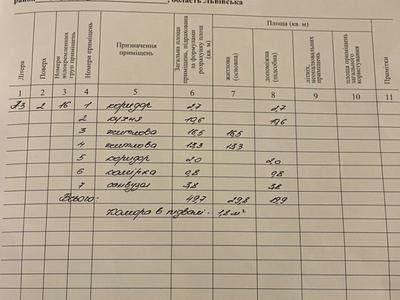 область Львівська
Літера
Поверх
Номери відокремлених груп приміщень
Номери приміщень
Призначення приміщень
Загальна площа приміщень, відрахована за формулами розрахунку площ (кв. м)
Площа (кв. м)
житлова (основна)
допоміжна (підсобна)
літніх, неопалювальних приміщень
площа приміщень загального користування
Примітки
1 2 3 4 5 6 7 8 9 10 11
А3 2 16 1 коридор 2,7 2,7
2 кухня
3 житлова 16,5 16,5
4 житлова 13,3 13,3
5 коридор 2,0 2,0
6 комірка 0,8 0,8
7 санвузол 3,8 3,8
Всього: 49,7 29,8 19,9
Комора в підвалі - 1,8 м²